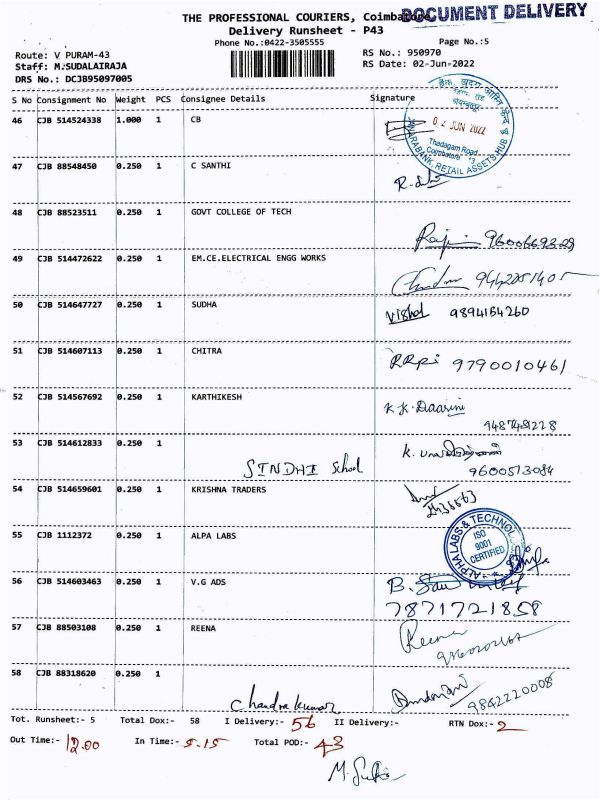 THE PROFESSIONAL COURIERS, Coimbatore.
DOCUMENT DELIVERY
Delivery Runsheet - P43
Phone No.:0422-3505555 Page No.:5
Route: V PURAM-43 RS No.: 950970
Staff: M.SUDALAIRAJA RS Date: 02-Jun-2022
DRS No.: DCJB95097005
S No Consignment No Weight PCS Consignee Details Signature
46 CJB 514524338 1.000 1 CB
02 JUN 2022
Thadagam Road
Coimbatore
RETAIL ASSETS HUB
47 CJB 88548450 0.250 1 C SANTHI
48 CJB 88523511 0.250 1 GOVT COLLEGE OF TECH
49 CJB 514472622 0.250 1 EM.CE.ELECTRICAL ENGG WORKS
50 CJB 514647727 0.250 1 SUDHA Vishal 9894154260
51 CJB 514607113 0.250 1 CHITRA 9790010461
52 CJB 514567692 0.250 1 KARTHIKESH K.K.Daarini
53 CJB 514612833 0.250 1 SINDHI School 9600513084
54 CJB 514659601 0.250 1 KRISHNA TRADERS
55 CJB 1112372 0.250 1 ALPA LABS
ALPHA LABS & TECHNO
ISO
9001
CERTIFIED
56 CJB 514603463 0.250 1 V.G ADS
7871721858
57 CJB 88503108 0.250 1 REENA Reena
58 CJB 88318620 0.250 1
Chandra Kumar 9842220008
Tot. Runsheet:- 5 Total Dox:- 58 I Delivery:- 56 II Delivery:- RTN Dox:- 2
Out Time:- 12.00 In Time:- 5.15 Total POD:- 43